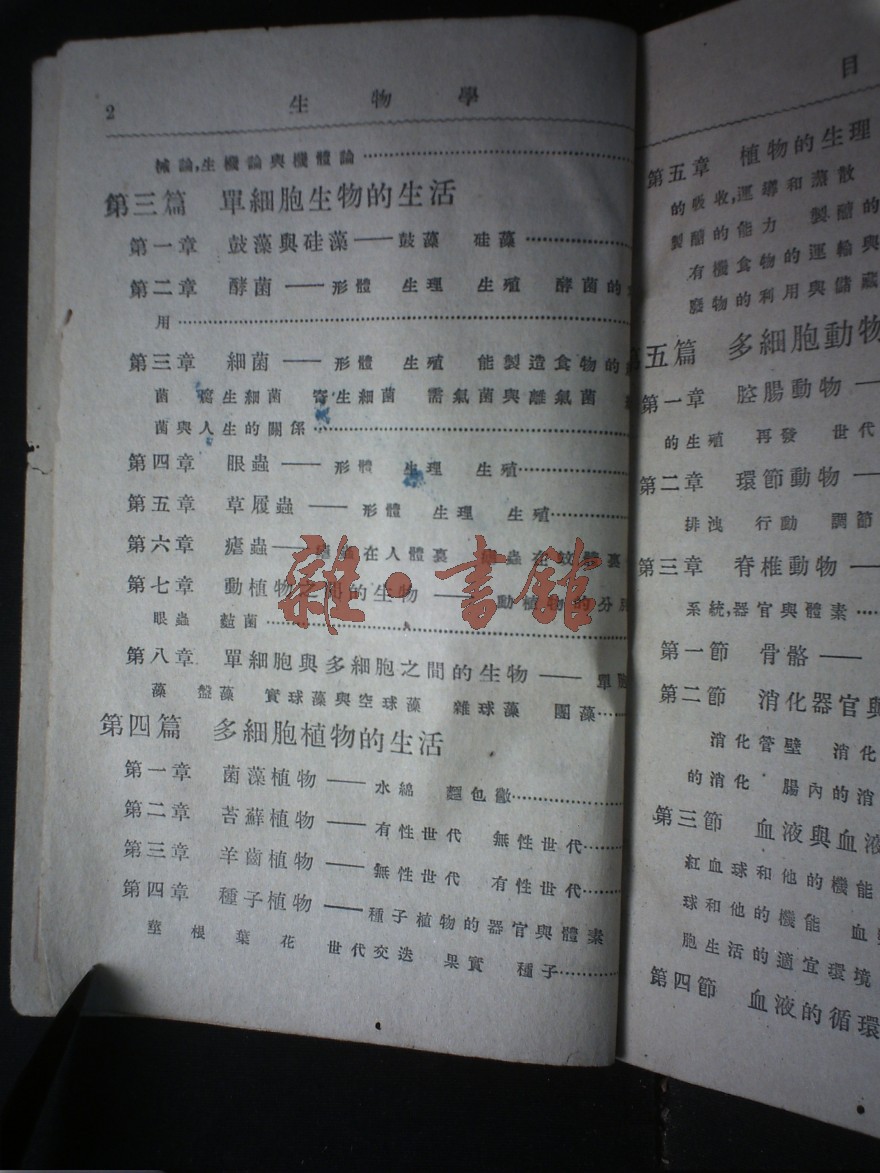 2 生物學
械論,生機論與機體論
第三篇 單細胞生物的生活
第一章 鼓藻與硅藻——鼓藻 硅藻
第二章 酵菌——形體 生理 生殖 酵菌的
用
第三章 細菌——形體 生殖 能製造食物的
菌 腐生細菌 寄生細菌 需氣菌與離氣菌
菌與人生的關係
第四章 眼蟲——形體 生理 生殖
第五章 草履蟲——形體 生理 生殖
第六章 瘧蟲——瘧蟲在人體裏
第七章 動植物之間的生物——動植物的分
眼蟲 菌
第八章 單細胞與多細胞之間的生物——單
藻 盤藻 實球藻與空球藻 雜球藻 團藻
第四篇 多細胞植物的生活
第一章 菌藻植物——水綿 麵色黴
第二章 苔蘚植物——有性世代 無性世代
第三章 羊齒植物——無性世代 有性世代
第四章 種子植物——種子植物的器官與體素
莖 根 葉 花 世代交迭 果實 種子
目
第五章 植物的生理
的吸收,運導和蒸散
製醣的能力 製醣的
有機食物的運輸與
廢物的利用與儲藏
五篇 多細胞動物
第一章 腔腸動物—
的生殖 再發 世代
第二章 環節動物—
排洩 行動 調節
第三章 脊椎動物—
系統,器官與體素
第一節 骨骼——
第二節 消化器官與
消化管壁 消化
的消化 腸內的消
第三節 血液與血液
紅血球和他的機能
球和他的機能 血
胞生活的適宜環境
第四節 血液的循環
雜·書館